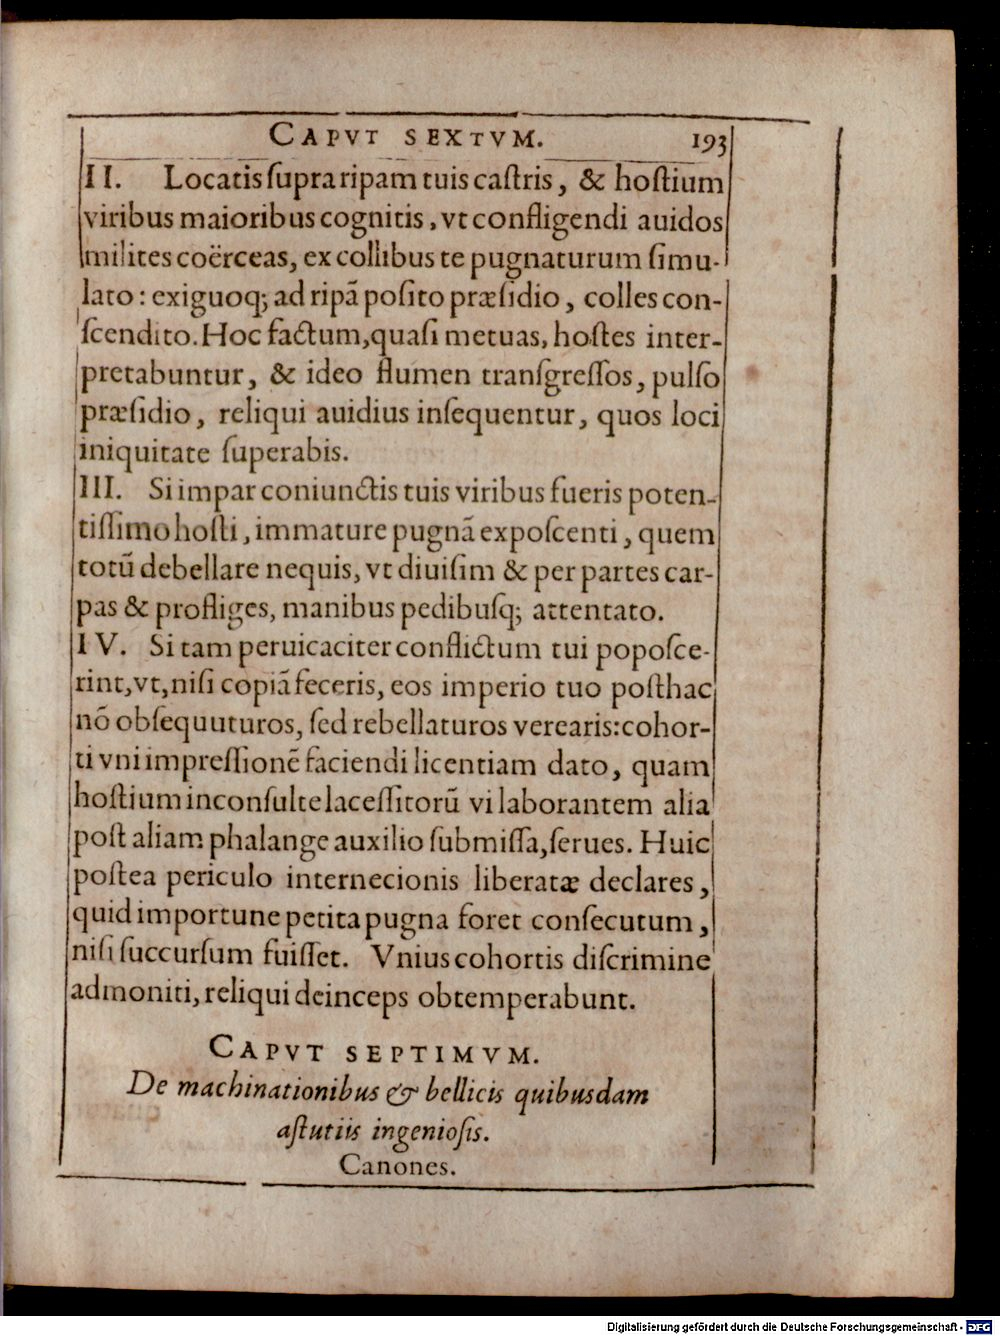 CAPVT SEXTVM. 193
II. Locatis ſupra ripam tuis caſtris, & hoſtium
viribus maioribus cognitis, vt confligendi auidos
milites coërceas, ex collibus te pugnaturum ſimu-
lato: exiguoq; ad ripã poſito præſidio, colles con-
ſcendito. Hoc factum, quaſi metuas, hoſtes inter-
pretabuntur, & ideo flumen tranſgreſſos, pulſo
præſidio, reliqui auidius inſequentur, quos loci
iniquitate ſuperabis.
III. Si impar coniunctis tuis viribus fueris poten-
tiſſimo hoſti, immature pugnã expoſcenti, quem
totũ debellare nequis, vt diuiſim & per partes car-
pas & profliges, manibus pedibuſq; attentato.
IV. Si tam peruicaciter conflictum tui popoſce-
rint, vt, niſi copiã feceris, eos imperio tuo poſthac
nõ obſequuturos, ſed rebellaturos verearis: cohor-
ti vni impreſſionẽ faciendi licentiam dato, quam
hoſtium inconſulte laceſſitorũ vi laborantem alia
poſt aliam phalange auxilio ſubmiſſa, ſerues. Huic
poſtea periculo internecionis liberatæ declares,
quid importune petita pugna foret conſecutum,
niſi ſuccurſum fuiſſet. Vnius cohortis diſcrimine
admoniti, reliqui deinceps obtemperabunt.
CAPVT SEPTIMVM.
De machinationibus & bellicis quibusdam
aſtutiis ingenioſis.
Canones.
Digitalisierung gefördert durch die Deutsche Forschungsgemeinschaft - DFG